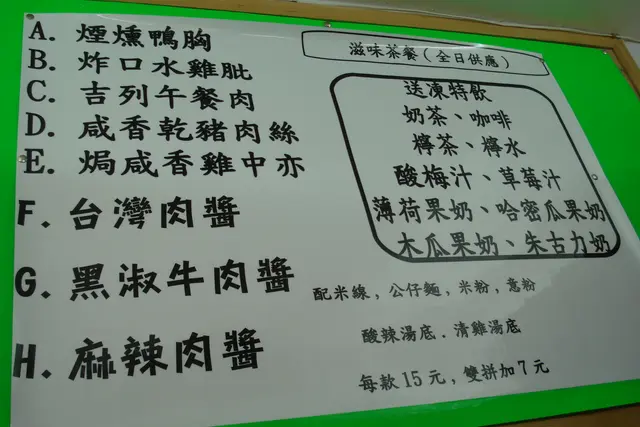 A. 煙燻鴨胸
B. 炸口水雞肶
C. 吉列午餐肉
D. 咸香乾豬肉絲
E. 焗咸香雞中亦
F. 台灣肉醬
G. 黑淑牛肉醬
H. 麻辣肉醬
滋味茶餐(全日供應)
送凍特飲
奶茶、咖啡
檸茶、檸水
酸梅汁、草莓汁
薄荷果奶、哈密瓜果奶
木瓜果奶、朱古力奶
配米線, 公仔麵, 米粉, 意粉
酸辣湯底. 清雞湯底
每款15元, 雙拼加7元